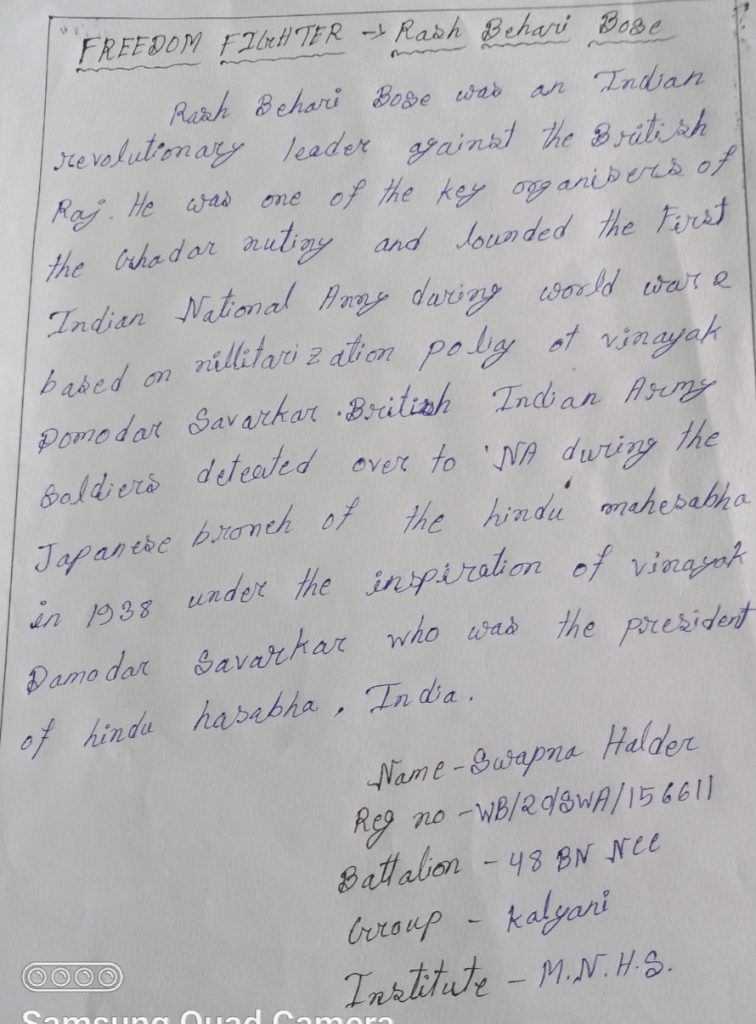 FREEDOM FIGHTER → Rash Behari Bose
Rash Behari Bose was an Indian
revolutionary leader against the British
Raj. He was one of the key organisers of
the Ghadar nutiny and lounded the First
Indian National Anny during world war 2
based on nillitarization poliy ot vinayak
Domodar Savarkar. British Indian Army
Soldiers deteated over to 'NA during the
Japanese broneh of the hindu mahesabha
in 1938 under the inspiration of vinayak
Damodar Savarkar who was the president
of hindu hasabha, India.
Name - Swapna Halder
Reg no - WB/20/SWA/156611
Battalion - 48 BN NCC
Group - Kalyani
Institute - M.N.H.S.
Samsung Quad Camera